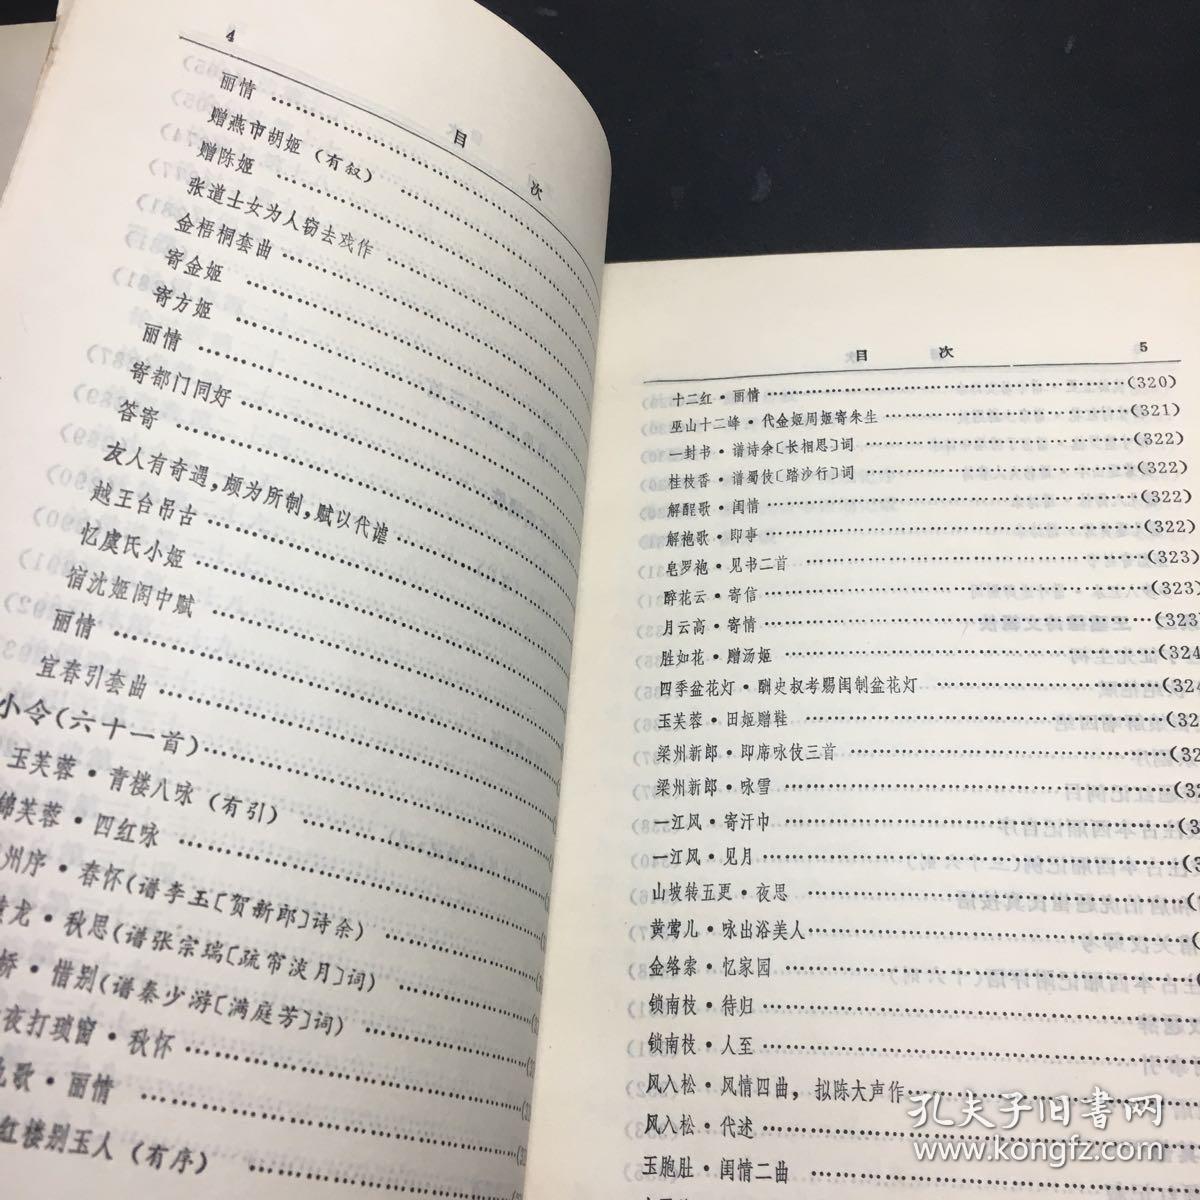 4
目 次
丽情
赠燕市胡姬（有叙）
赠陈姬
张道士女为人窃去戏作
金梧桐套曲
寄金姬
寄方姬
丽情
寄都门同好
答寄
友人有奇遇，颇为所制，赋以代谑
越王台吊古
忆虞氏小姬
宿沈姬阁中赋
丽情
宜春引套曲
小令（六十一首）
玉芙蓉·青楼八咏（有引）
锦芙蓉·四红咏
州序·春怀（谱李玉〔贺新郎〕诗余）
龙·秋思（谱张宗瑞〔疏帘淡月〕词）
桥·惜别（谱秦少游〔满庭芳〕词）
夜打琐窗·秋怀
歌·丽情
红楼别玉人（有序）
目 次 5
十二红·丽情……(320)
巫山十二峰·代金姬周姬寄朱生……(321)
一封书·谱诗余〔长相思〕词……(322)
桂枝香·谱蜀伎〔踏沙行〕词……(322)
解酲歌·闺情……(322)
解袍歌·即事……(322)
皂罗袍·见书二首……(323)
醉花云·寄信……(323)
月云高·寄情……(323
胜如花·赠汤姬……(324
四季盆花灯·酬史叔考赐闺制盆花灯……(324
玉芙蓉·田姬赠鞋……(32
梁州新郎·即席咏伎三首……(32
梁州新郎·咏雪……(32
一江风·寄汗巾……(3
一江风·见月……(3
山坡转五更·夜思……(
黄莺儿·咏出浴美人……(
金络索·忆家园……(
锁南枝·待归……
锁南枝·人至……
风入松·风情四曲，拟陈大声作……
风入松·代述……
玉胞肚·闺情二曲……
孔夫子旧书网
www.kongfz.com